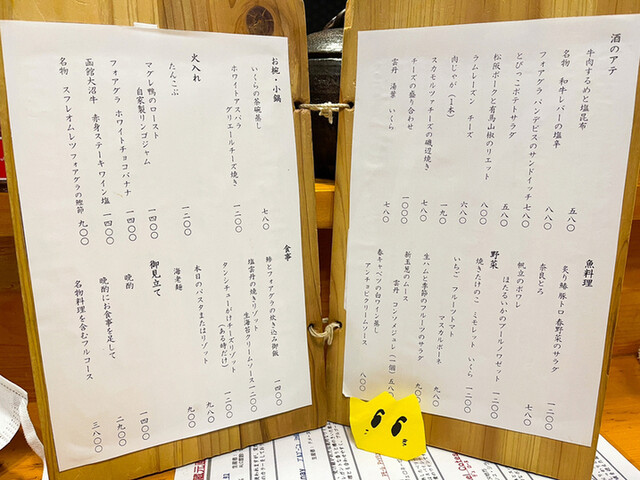 酒のアテ
牛肉するめと塩昆布 五八〇
名物 和牛レバーの塩辛 八八〇
フォアグラ パンデピスのサンドイッチ 七八〇
とびっこポテトサラダ 五八〇
松阪ポークと有馬山椒のリエット 八〇〇
ラムレーズン チーズ 六八〇
肉じゃが(1本) 一九〇
スカモルツァチーズの磯辺焼き 七八〇
チーズの盛り合わせ 一〇〇〇
雲丹 湯葉 いくら 七八〇
魚料理
炙り鰆豚トロ 春野菜のサラダ 一二〇〇
奈良とろ 七八〇
帆立のポワレ
ほたるいかのブールノワゼット 一二〇〇
野菜
焼きたけのこ ミモレット いくら 一二〇〇
いちご フルーツトマト
マスカルポーネ 九八〇
生ハムと季節のフルーツのサラダ
新玉葱のムース
雲丹 コンソメジュレ(一個)五八〇
春キャベツの白ワイン蒸し
アンチョビクリームソース 八〇〇
お椀・小鍋
いくらの茶碗蒸し 七八〇
ホワイトアスパラ
グリエールチーズ焼き 一二〇〇
火入れ
たんこぶ 一二〇〇
マグレ鴨のロースト
自家製リンゴジャム 一四〇〇
フォアグラ ホワイトチョコバナナ 一四〇〇
函館大沼牛 赤身ステーキワイン塩 一四〇〇
名物 スフレオムレツ フォアグラの鰹節 九〇〇
食事
鯵とフォアグラの炊き込み御飯 一四〇〇
塩雲丹の焼きリゾット
生海苔クリームソース 一二〇〇
タンシチューがけチーズリゾット
(ある時だけ) 一二〇〇
本日のパスタまたはリゾット 九八〇
海老麺 九〇〇
御見立て
晩酌 一四〇〇
晩酌にお食事を足して 二九〇〇
名物料理を含むフルコース 三八〇〇